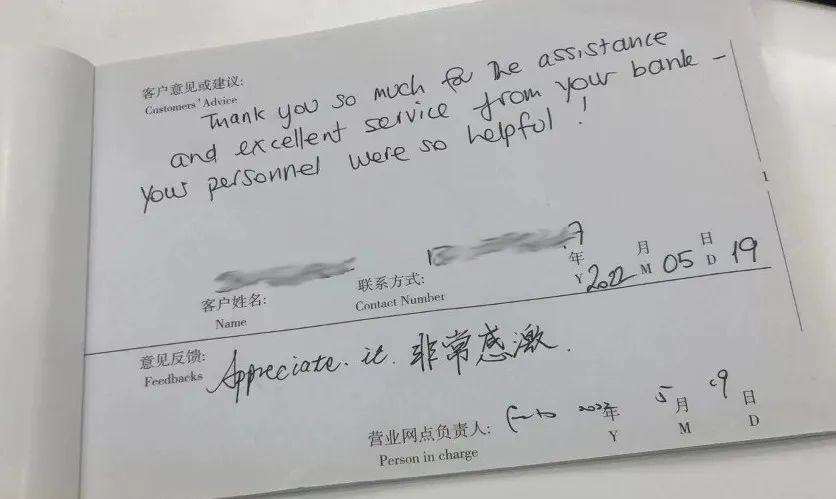 客户意见或建议:
Customers' Advice
Thank you so much for the assistance
and excellent service from your bank –
Your personnel were so helpful!
1
客户姓名:
Name
联系方式:
Contact Number
7
年 月 日
Y 2022 M 05 D 19
意见反馈:
Feedbacks
Appreciate it. 非常感激.
营业网点负责人: 2022年 5月 19日
Person in charge Y M D